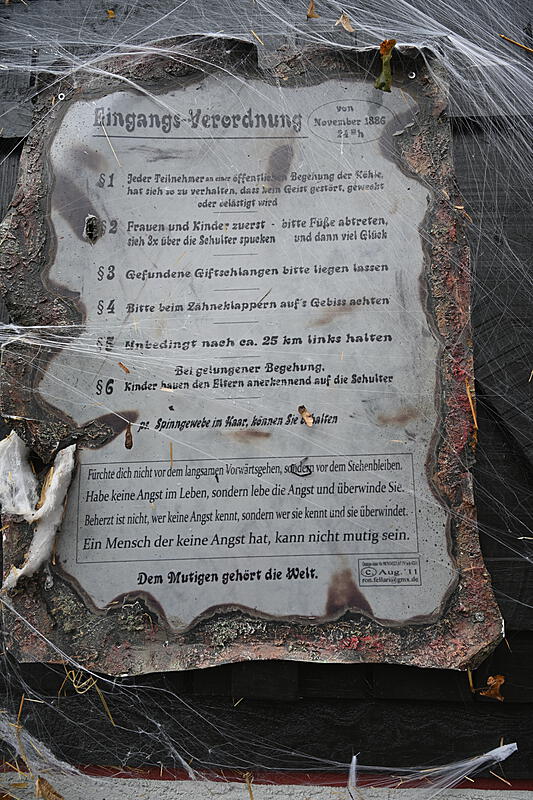 Eingangs-Verordnung
von
November 1886
24ººh
§1 Jeder Teilnehmer an einer öffentlichen Begehung der Höhle,
hat sich so zu verhalten, dass kein Geist gestört, geweckt
oder belästigt wird
§2 Frauen und Kinder zuerst - bitte Füße abtreten,
sich 3x über die Schulter spucken und dann viel Glück
§3 Gefundene Giftschlangen bitte liegen lassen
§4 Bitte beim Zähneklappern auf's Gebiss achten
§5 Unbedingt nach ca. 25 km links halten
Bei gelungener Begehung,
§6 Kinder hauen den Eltern anerkennend auf die Schulter
ps. Spinngewebe im Haar, können Sie behalten
Fürchte dich nicht vor dem langsamen Vorwärtsgehen, sondern vor dem Stehenbleiben.
Habe keine Angst im Leben, sondern lebe die Angst und überwinde Sie.
Beherzt ist nicht, wer keine Angst kennt, sondern wer sie kennt und sie überwindet.
Ein Mensch der keine Angst hat, kann nicht mutig sein.
Dem Mutigen gehört die Welt.
© Aug. '11
ron.fellari@gmx.de